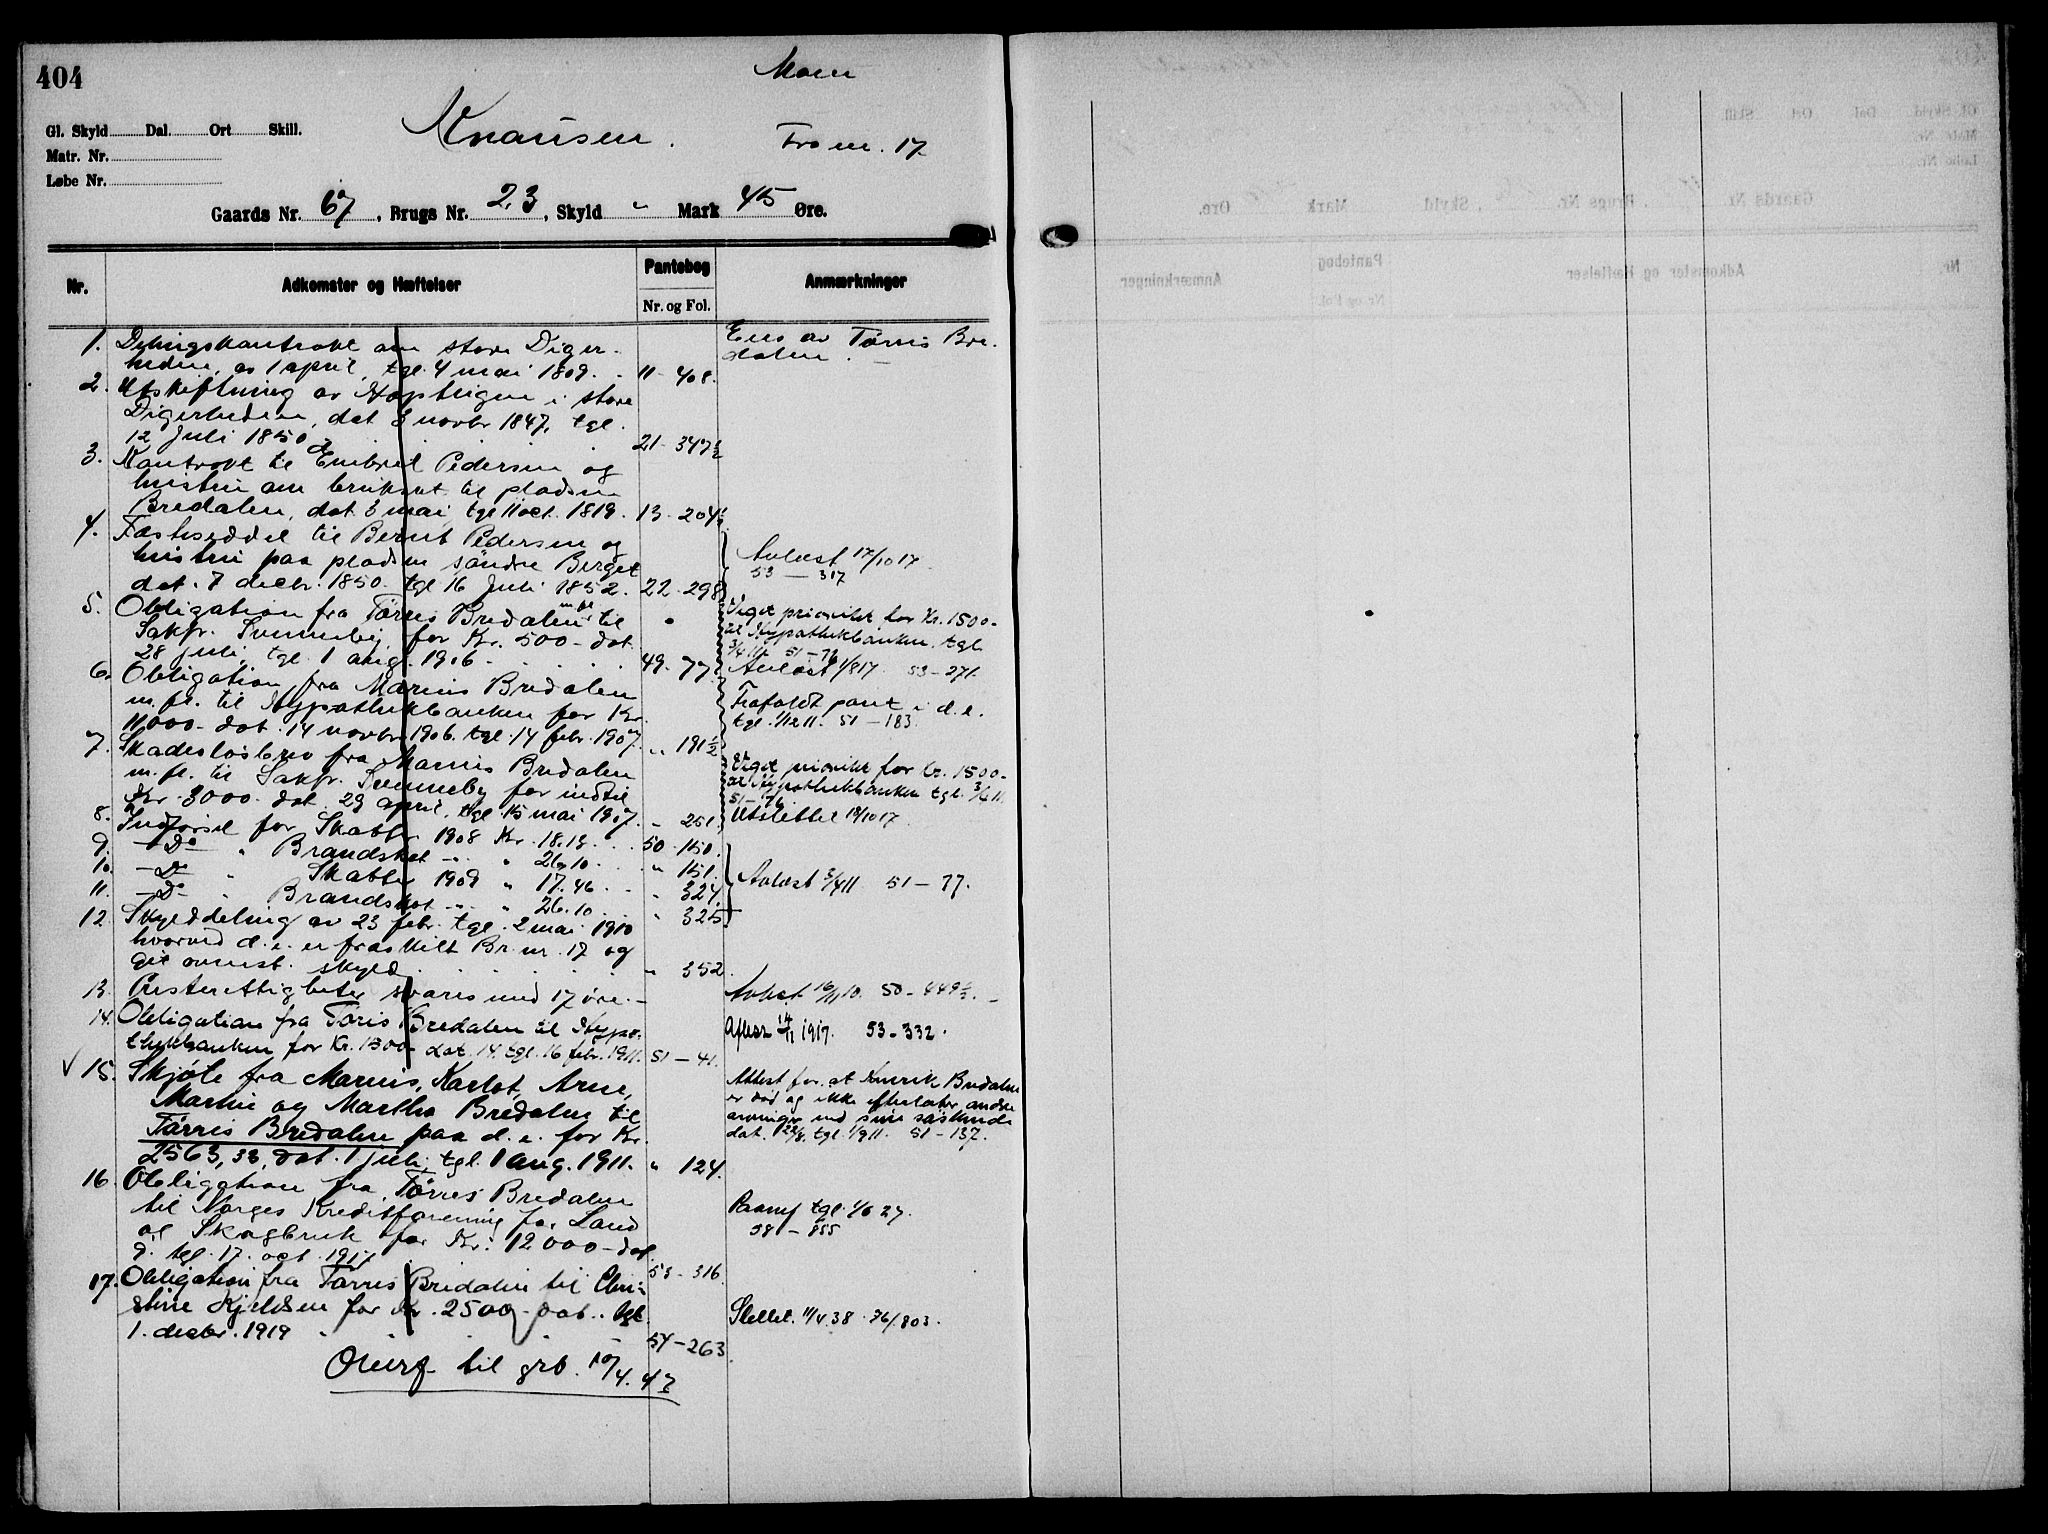 404
Moen
Knausen.
Fra nr. 17.
Gl. Skyld Dal. Ort Skill.
Matr. Nr.
Løbe Nr.
Gaards Nr. 67, Brugs Nr. 23, Skyld " Mark 45 Øre.
Nr. Adkomster og Hæftelser Pantebog Anmærkninger
Nr. og Fol.
1. Delingskontrakt om store Diger-
heden, av 1 april, tgl. 4 mai 1809. 11 - 408.
Eies av Tørris Bre-
dalen.
2. Utskiftning av i store
Digerheden, dat. 8 novbr 1847, tgl.
12 Juli 1850 21 - 347½
3. Kontrakt til Embret Pedersen og
hustru om bruksret til pladsen
Bredalen, dat. 3 mai, tgl 11 oct. 1819. 13 - 204½
4. Fæsteseddel til Bernt Pedersen og
hustru paa pladsen søndre Berget
dat. 7 decbr. 1850. tgl 16 Juli 1852. 22 - 298
Avlæst 17/10 17.
53 - 317
5. Obligation fra Tørris Bredalen m.fl. til
Sakfr. Svenneby for Kr. 500 - dat.
28 juli, tgl. 1 aug. 1906. 49 - 77.
Veget prioritet for Kr. 1500 -
til Hypothekbanken, tgl.
3/4 11. 51 - 76
Avlæst 1/8 17. 53 - 271.
6. Obligation fra Marius Bredalen
m. fl. til Hypothekbanken for Kr.
11000 - dat. 14 novbr. 1906. tgl. 14 febr. 1907. " 191½
Frafaldt pant i d.e.
tgl. 1/12 11. 51 - 183.
7. Skadesløsbrev fra Marius Bredalen
m. fl. til Sakfr. Svenneby for indtil
Kr. 3000 - dat. 29 april, tgl. 15 mai 1907. " 251
Veget prioritet for Kr. 1500 -
til Hypothekbanken tgl. 3/4 11.
51 - 76
Utslettet 18/10 17.
8. Indførsel for Skatter 1908 Kr. 18.18. 50 - 150.
9. - Do " Brandskat - " - " 26.10. " 151.
10. - Do " Skatter 1909 " 17.46. " 324.
11. - Do " Brandskat - " - " 26.10. " 325
Avlæst 3/4 11 51 - 77.
12. Skylddeling av 23 febr. tgl. 2 mai 1910
hvorved d. e. er fraskilt Br. nr. 17 og
git ovenst. skyld. " 352.
13. Presterettigheter svares med 17 øre. -
Avløst 16/11 10. 50 - 449½. -
14. Obligation fra Tøris Bredalen til Hypo-
thekbanken for Kr. 1500 - dat. 14. tgl. 16 febr. 1911. 51 - 41.
Aflæst 14/11 1917. 53 - 332.
15. Skjøte fra Marius, Karlot, Arne,
Martin og Martha Bredalen til
Tørris Bredalen paa d. e. for Kr.
2563,33, dat. 1 juli, tgl. 1 aug. 1911. " 124.
Attest for at Bredalen
er død og ikke efterlater andre
arvinger end sine søskende
dat. 22/8, tgl. 1/9 11. 51 - 137.
16. Obligation fra Tørres Bredalen
til Norges Kreditforening for Land
og Skogbruk for Kr. 12000 - dat
9. tgl. 17. oct. 1917 53 - 316.
Paany tgl. 1/6 27.
58 - 855
17. Obligation fra Tørres Bredalen til Chri-
stine Kjeldsen for Kr. 2500 - dat. tgl.
1. decbr. 1919 54 - 263.
Slettet. 11/4.38. 76/803.
Overf. til grb. 10/4.47